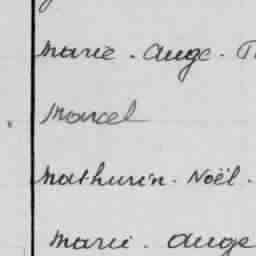 Marie. Ange.
Marcel
Mathurin. Noël.
Marie. Ange